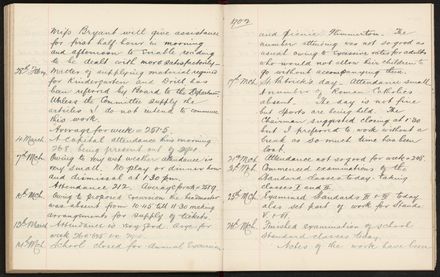 Miss Bryant will give assistance
for first half hour in morning
and afternoon to enable reading
to be dealt with more satisfactorily.
25th Feby Matter of supplying material required
for Kindergarten and Drill has
been referred by Board to the Department
Unless the Committee supply the
articles I do not intend to commence
this work.
Average for week = 257.5
4 March A capital attendance this morning
268 being present out of 290
7th Mch Owing to very wet weather attendance is
very small. No play or dinner hour
and dismissal at 1.30 pm.
Attendance 212. Average for wk = 259
10th Mch Owing to proposed excursion the headmaster
was absent from 10.45 till 11.30 making
arrangements for supply of tickets.
13th March Attendance is very good. Avge for
week
14th Mch School closed for Annual Excursion
1902
and picnic. The
number attending was not so good as
usual owing to excursion rates for adults
who would not allow their children to
go without accompanying them.
17th Mch St Patrick's day. Attendance small
A number of Roman Catholics
absent. The day is not fine
but sports are being held. The
Chairman suggested closing at 1.30
but I preferred to work without a
break as so much time has been
lost.
21st Mch Attendance not so good for week = 248.
Mch Commenced examinations of the
Standard classes today. taking
classes I and II.
25th Mch Examined Standards III & IV today
also set part of work for Stands
V & VI.
26th Mch Finished examination of school
Standard classes today.
Notes of the work have been